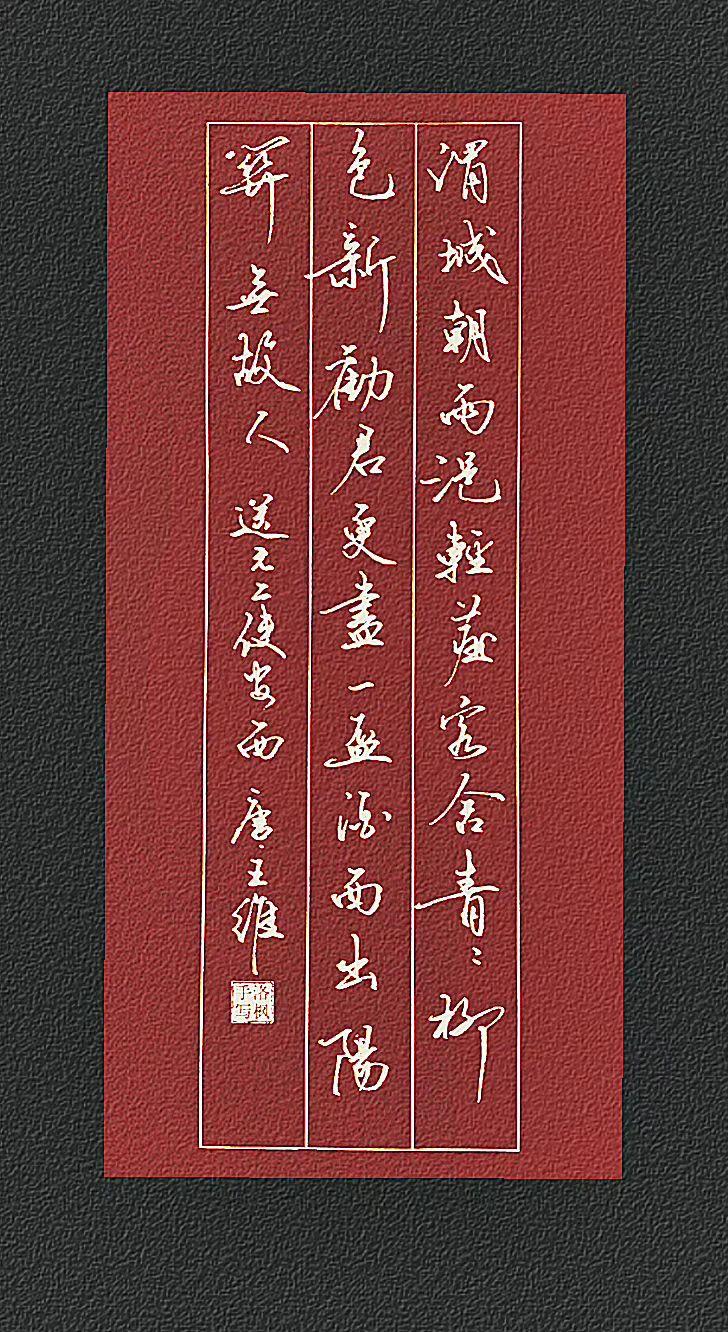 渭城朝雨浥輕塵客舍青〻柳
色新勸君更盡一盃酒西出陽
關無故人 送元二使安西 唐·王維
洛枫
手写